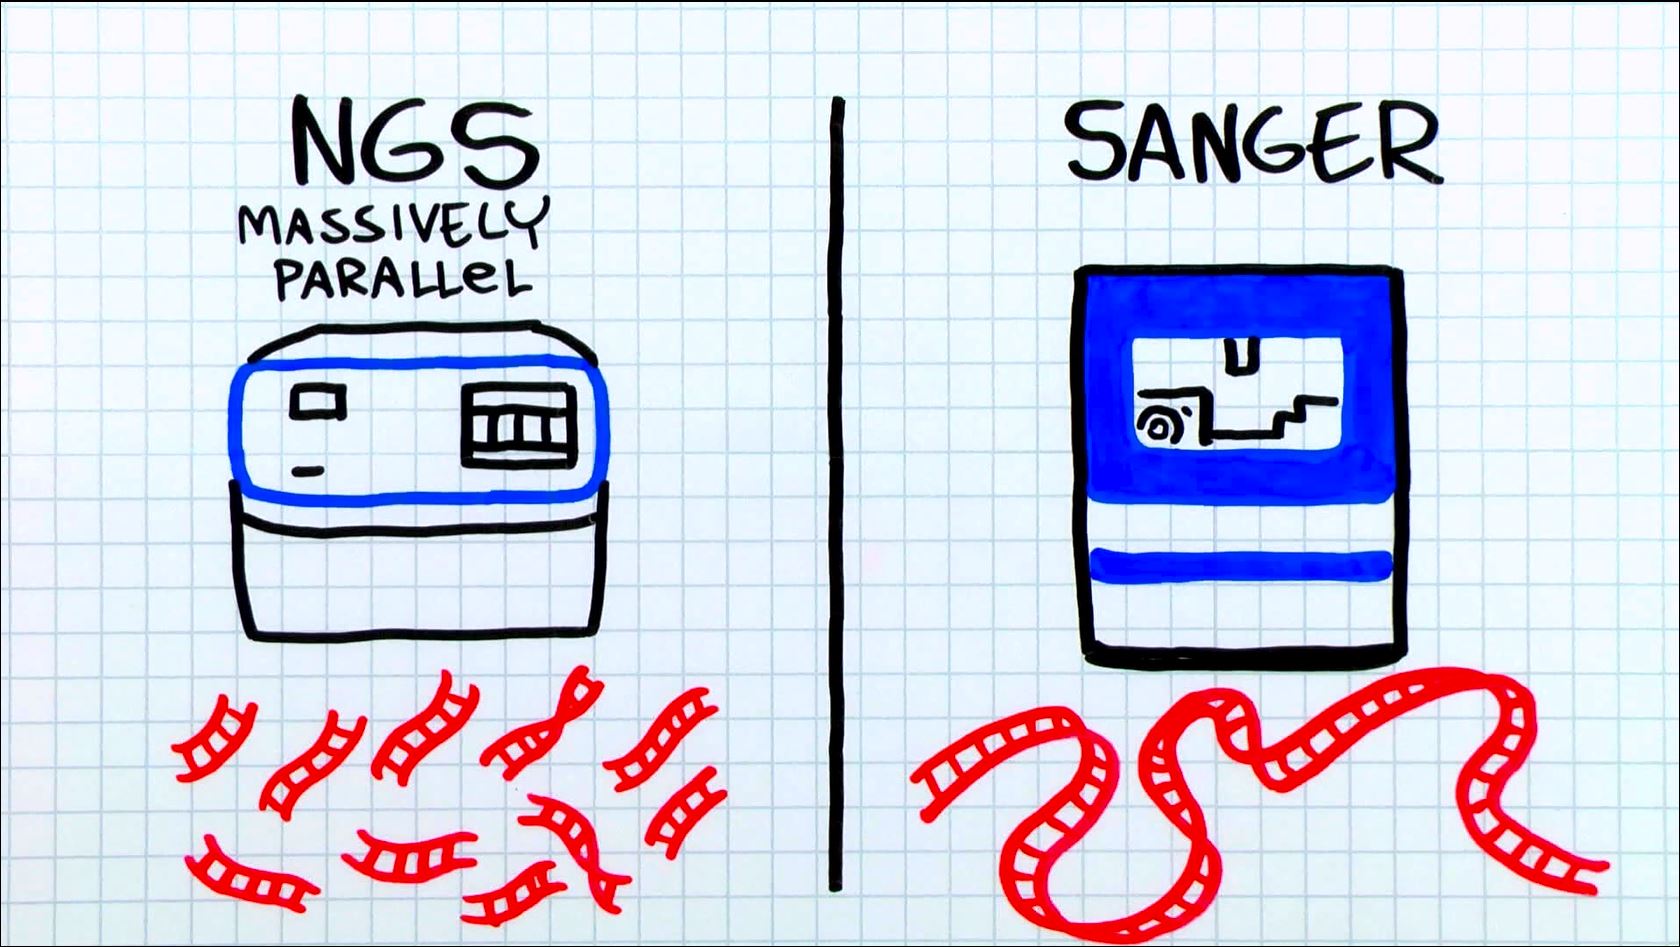 NGS
MASSIVELY
PARALLeL
SANGER